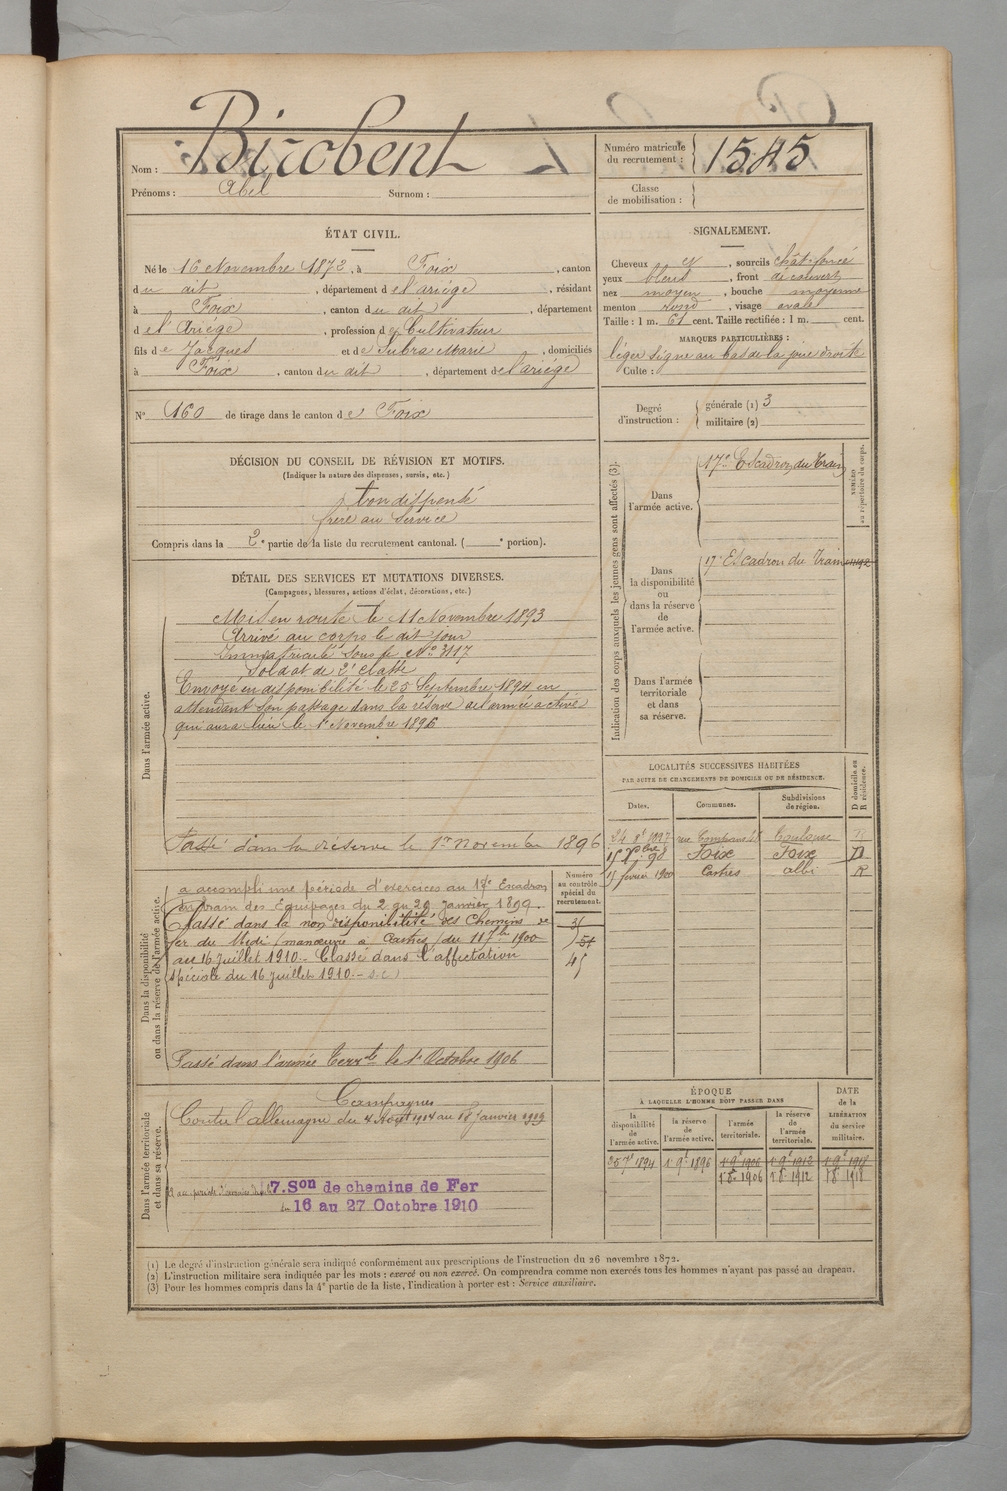 Nom : Birobent
Prénoms : Abel Surnom :
Numéro matricule du recrutement : 1545
Classe de mobilisation :
ÉTAT CIVIL.
Né le 16 Novembre 1872, à Foix, canton
du dit, département de l'ariége, résidant
à Foix, canton du dit, département
de l'Ariége, profession de Cultivateur
fils de Jacques et de Subra Marie, domiciliés
à Foix, canton du dit, département de l'ariége
N° 160 de tirage dans le canton de Foix
SIGNALEMENT.
Cheveux et, sourcils chât. foncé
yeux bleus, front découvert
nez moyen, bouche moyenne
menton rond, visage ovale
Taille : 1 m. 61 cent. Taille rectifiée : 1 m. cent.
MARQUES PARTICULIÈRES :
léger signe au bas de la joue droite
Culte :
Degré d'instruction : générale (1) 3
militaire (2)
DÉCISION DU CONSEIL DE RÉVISION ET MOTIFS.
(Indiquer la nature des dispenses, sursis, etc.)
bon dispensé
frère au service
Compris dans la 2e partie de la liste du recrutement cantonal. ( e portion).
DÉTAIL DES SERVICES ET MUTATIONS DIVERSES.
(Campagnes, blessures, actions d'éclat, décorations, etc.)
Dans l'armée active.
Mis en route le 11 Novembre 1893
Arrivé au corps le dit jour
Immatriculé sous le No 3117
Soldat de 2e classe
Envoyé en disponibilité le 25 Septembre 1894 en
attendant son passage dans la réserve de l'armée active
qui aura lieu le 1er Novembre 1896
Passé dans la réserve le 1er Novembre 1896
Dans la disponibilité ou dans la réserve de l'armée active.
a accompli une période d'exercices au 17e Escadron
du train des Équipages du 2 au 29 janvier 1899.
Classé dans la non disponibilité des Chemins de
fer du Midi (manœuvre à Castres) du 11 7bre 1900
au 16 juillet 1910.- Classé dans l'affectation
spéciale du 16 juillet 1910.- s.c.
Passé dans l'armée Terrle le 1er Octobre 1906
Numéro au contrôle spécial du recrutement.
Dans l'armée territoriale et dans sa réserve.
Campagnes
Contre l'allemagne du 4 Août 1914 au 18 Janvier 1919
7. Son de chemins de Fer
16 au 27 Octobre 1910
Indication des corps auxquels les jeunes gens sont affectés (3).
NUMÉRO au répertoire du corps.
Dans l'armée active.
17e Escadron du Train
Dans la disponibilité ou dans la réserve de l'armée active.
17e Escadron du Train
Dans l'armée territoriale et dans sa réserve.
LOCALITÉS SUCCESSIVES HABITÉES
PAR SUITE DE CHANGEMENTS DE DOMICILE OU DE RÉSIDENCE.
Dates. Communes. Subdivisions de région. D domicile ou R résidence.
24 8t 1897 Toulouse
15 Xbre 98 Foix Foix D
15 février 1900 Castres Albi R
ÉPOQUE
À LAQUELLE L'HOMME DOIT PASSER DANS
la disponibilité de l'armée active.
la réserve de l'armée active.
l'armée territoriale.
la réserve de l'armée territoriale.
DATE de la LIBÉRATION du service militaire.
25 7e 1894 1er 9e 1896 1er 9e 1906 1er 9e 1912 1er 9e 1918
1er 8e 1906 1er 8e 1912 1er 8e 1918
(1) Le degré d'instruction générale sera indiqué conformément aux prescriptions de l'instruction du 26 novembre 1872.
(2) L'instruction militaire sera indiquée par les mots : exercé ou non exercé. On comprendra comme non exercés tous les hommes n'ayant pas passé au drapeau.
(3) Pour les hommes compris dans la 4e partie de la liste, l'indication à porter est : Service auxiliaire.